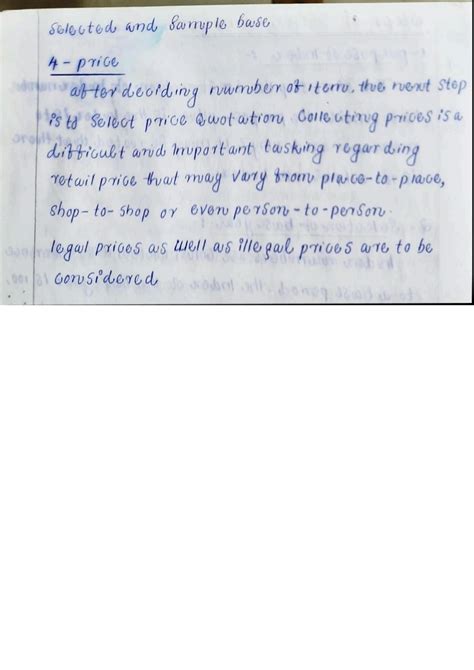 selected and sample base
4 - price
after deciding number of item. the next step
is to select price Quotation. Collecting prices is a
difficult and important tasking regarding
retail price that may vary from place-to-place,
shop-to-shop or even person-to-person.
legal prices as well as illegal prices are to be
considered